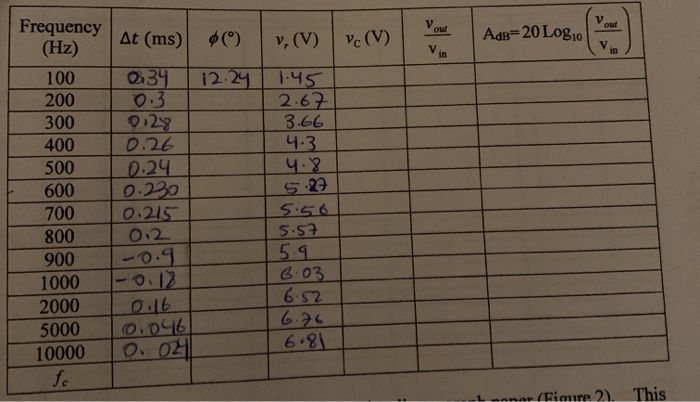 Frequency (Hz) Δt (ms) ϕ (°) vr (V) vC (V) Vout/Vin AdB=20 Log10 (Vout/Vin)
100 0.34 12.24 1.45
200 0.3 2.67
300 0.28 3.66
400 0.26 4.3
500 0.24 4.8
600 0.230 5.27
700 0.215 5.56
800 0.2 5.57
900 -0.9 5.9
1000 -0.18 6.03
2000 0.16 6.52
5000 0.046 6.76
10000 0.021 6.81
fc
paper (Figure 2). This